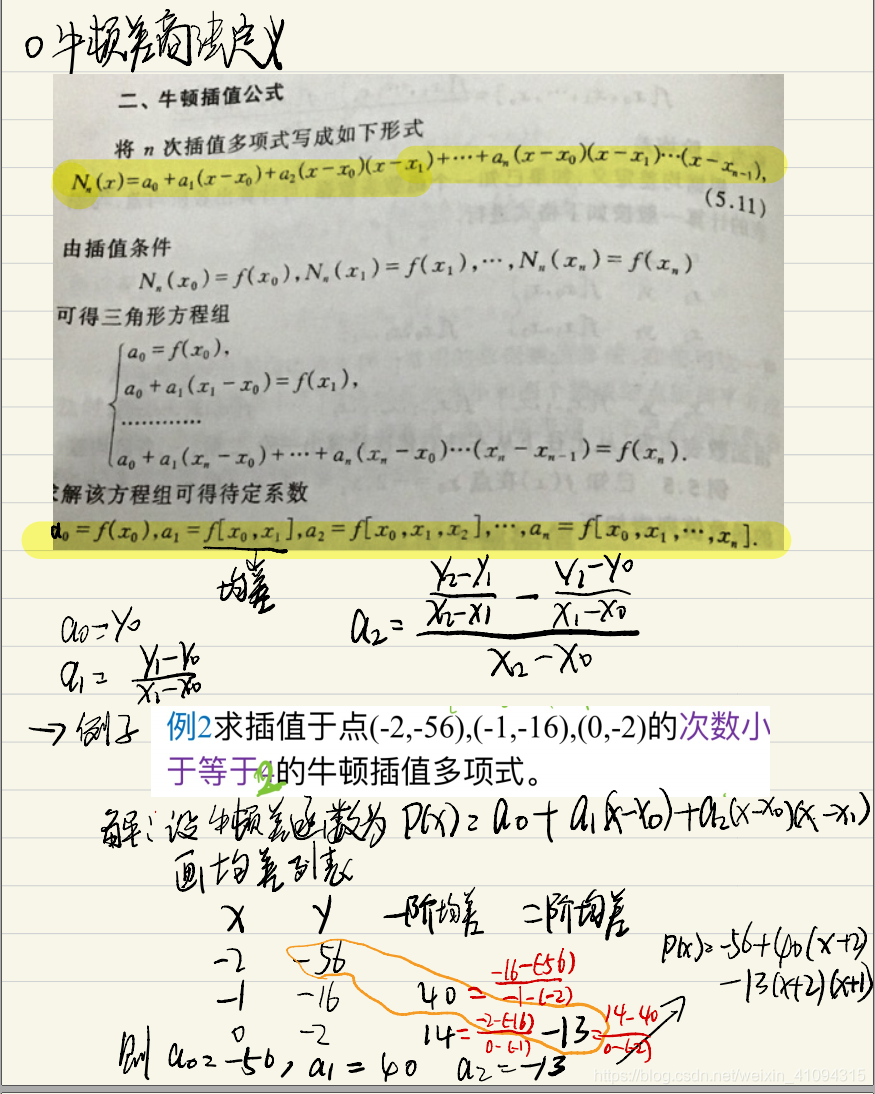 ○牛顿差商法定义
二、牛顿插值公式
将 n 次插值多项式写成如下形式
Nₙ(x)=a₀+a₁(x-x₀)+a₂(x-x₀)(x-x₁)+⋯+aₙ(x-x₀)(x-x₁)⋯(x-xₙ₋₁),
(5.11)
由插值条件
Nₙ(x₀)=f(x₀),Nₙ(x₁)=f(x₁),⋯,Nₙ(xₙ)=f(xₙ)
可得三角形方程组
a₀=f(x₀),
a₀+a₁(x₁-x₀)=f(x₁),
⋯⋯⋯⋯
a₀+a₁(xₙ-x₀)+⋯+aₙ(xₙ-x₀)⋯(xₙ-xₙ₋₁)=f(xₙ).
求解该方程组可得待定系数
a₀=f(x₀),a₁=f[x₀,x₁],a₂=f[x₀,x₁,x₂],⋯,aₙ=f[x₀,x₁,⋯,xₙ].
均差
a₀=y₀
a₁= (y₁-y₀)/(x₁-x₀)
a₂= ((y₂-y₁)/(x₂-x₁) - (y₁-y₀)/(x₁-x₀))/(x₂-x₀)
→例子
例2求插值于点(-2,-56),(-1,-16),(0,-2)的次数小
于等于2的牛顿插值多项式。
解:设牛顿差函数为 P(x)=a₀+a₁(x-x₀)+a₂(x-x₀)(x-x₁)
画均差列表
x y 一阶均差 二阶均差
-2 -56
-1 -16 40= (-16-(-56))/(-1-(-2))
0 -2 14= (-2-(-16))/(0-(-1)) -13= (14-40)/(0-(-2))
P(x)=-56+40(x+2)
-13(x+2)(x+1)
则 a₀=-56, a₁=40 a₂=-13
https://blog.csdn.net/weixin_41094315